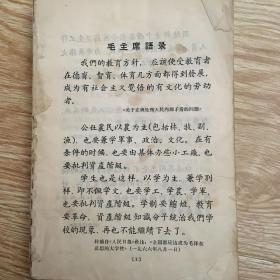 毛主席語录
我们的教育方针，应該使受教育者
在德育、智育、体育几方面都得到發展，
成为有社会主义覺悟的有文化的劳动
者。
《关于正确处理人民内部矛盾的問題》
公社农民以农为主(包括林、牧、副、
漁)，也要兼学軍事、政治、文化。在有
条件的时候，也要由集体办些小工厂，也
要批判資產階級。
学生也是这样，以学为主，兼学別
样，即不但学文，也要学工、学农、学軍，
也要批判資產階級。学制要縮短，教育
要革命，資產階級知識分子統治我們学
校的現象，再也不能継續下去了。
轉摘自《人民日报》社論：《全国都应該成为毛泽东
思想的大学校》（一九六六年八月一日）
(1)